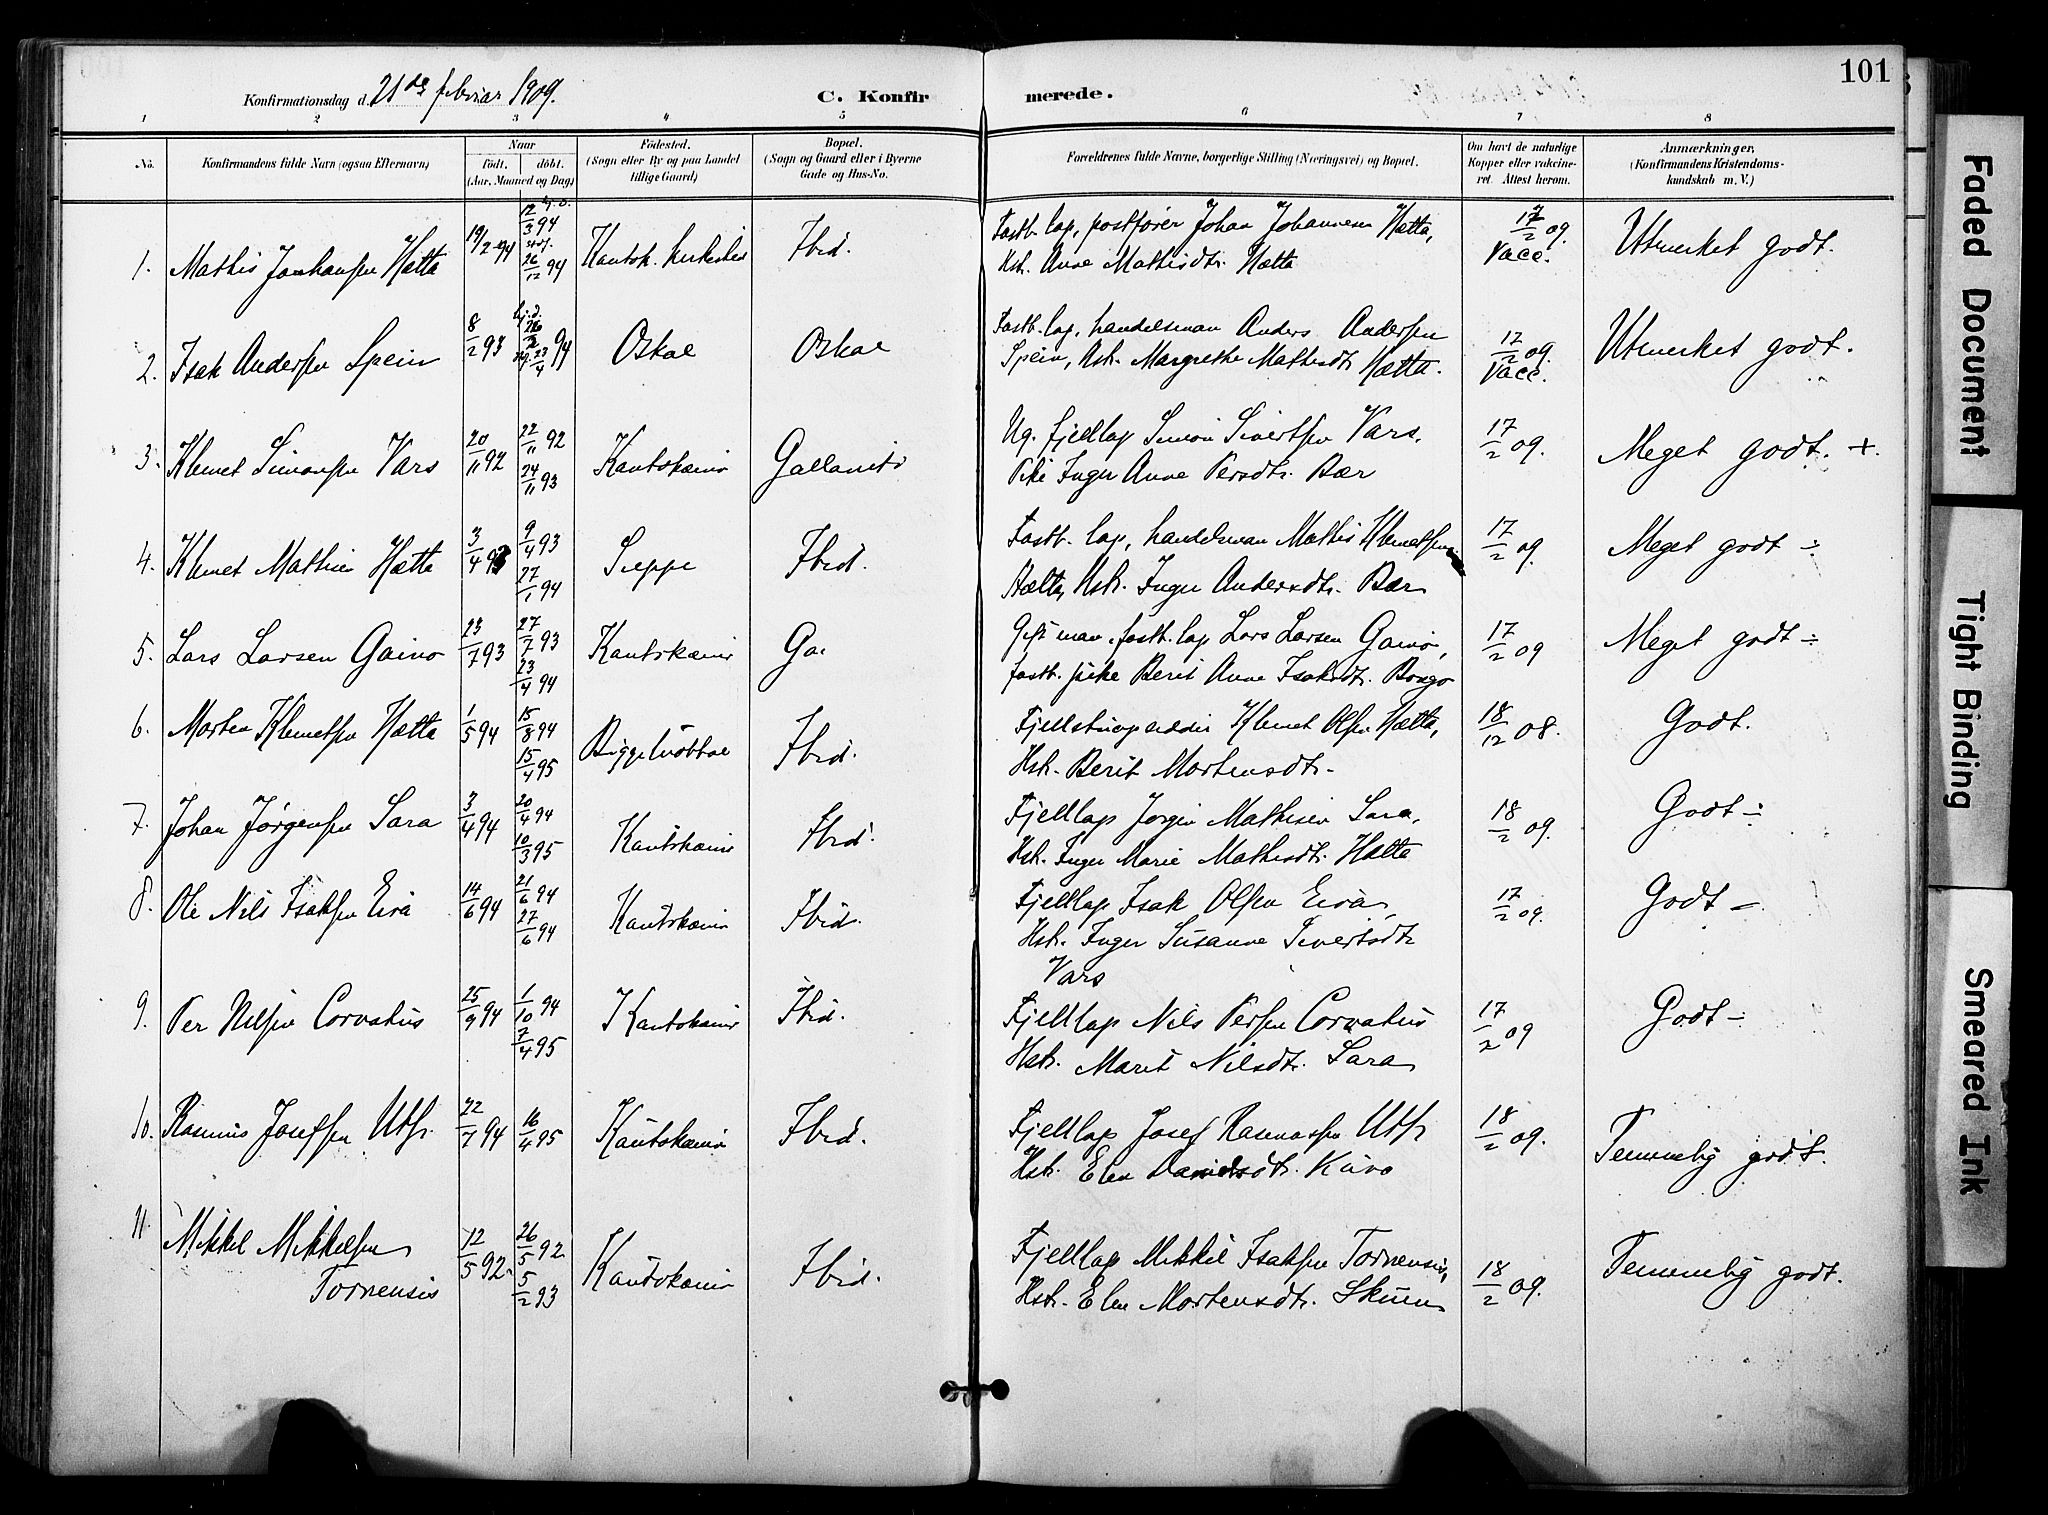 101
Konfirmationsdag d. 21de februar 1909.
C. Konfirmerede.
1 2 3 4 5 6 7 8
No.
Konfirmandens fulde Navn (ogsaa Efternavn)
Naar
født. døbt.
(Aar, Maaned og Dag)
Fødested.
(Sogn eller By og paa Landet
tillige Gaard)
Bopæl.
(Sogn og Gaard eller i Byerne
Gade og Hus-No.
Forældrenes fulde Navne, borgerlige Stilling (Næringsvei) og Bopæl.
Om havt de naturlige
Kopper eller vakcine-
ret. Attest herom.
Anmærkninger,
(Konfirmandens Kristendoms-
kundskab m. V.)
1. Mathis Johansen Hætta 19/2-94 12/3 94 26/12 94 Kautok. kirkested Ibid.
Fastb. lap, postfører Johan Johannesen Hætta,
Hstr. Anne Mathisdtr. Hætta
17/2 09. Vacc.
Utmerket godt.
2. Isak Andersen Spein 8/2 93 hj.d. 23/4 94 Oskal Oskal
Fastb. lap, handelsman Anders Andersen
Spein, Hstr. Margrethe Mathisdtr. Hætta.
17/2 09. Vacc.
Utmerket godt.
3. Klemet Simonsen Vars 20/11 92 22/11 92 24/11 93 Kautokeino Gallanito
Ug. fjellap Simon Sivertsen Vars,
Pike Inger Anne Persdtr. Bær
17/2 09.
Meget godt. +.
4. Klemet Mathisen Hætta 3/4 93 9/4 93 27/1 94 Sieppe Ibid.
Fastb. lap, handelsman Mathis Klemetsen
Hætta, Hstr. Inger Andersdtr. Bær
17/2 09.
Meget godt ÷
5. Lars Larsen Gaino 23/7 93 27/7 93 23/4 94 Kautokeino
Gift man, fastb. lap Lars Larsen Gaino,
fastb. pike Berit Anne Isaksdtr. Bongo
17/2 09
Meget godt ÷
6. Morten Klemetsen Hætta 1/5 94 15/8 94 15/4 95 Biggeluobbal Ibid.
Fjellstuopsidder Klemet Olsen Hætta,
Hstr. Berit Mortensdtr.
18/12 08.
Godt.
7. Johan Jørgensen Sara 3/4 94 20/4 94 10/3 95 Kautokeino Ibid.
Fjellap Jørgen Mathisen Sara,
Hstr. Inger Marie Mathisdtr. Hætta
18/2 09.
Godt ÷
8. Ole Nils Isaksen Eira 14/6 94 21/6 94 27/6 94 Kautokeino Ibid.
Fjellap Isak Olsen Eira,
Hstr. Inger Susanne Sivertsdtr
Vars
17/2 09.
Godt -
9. Per Nilsen Corvatus 25/9 94 1/10 94 7/4 95 Kautokeino Ibid.
Fjellap Nils Persen Corvatus
Hstr. Marit Nilsdtr. Sara
17/2 09
Godt -
10. Rasmus Josefsen Utsi 22/7 94 16/4 95 Kautokeino Ibid.
Fjellap Josef Rasmussen Utsi
Hstr. Elen Davidsdtr. Kuvo
18/2 09.
Temmelig godt.
11. Mikkel Mikkelsen
Tornensis 12/5 92. 26/5 92 5/2 93 Kautokeino Ibid.
Fjellap Mikkel Isaksen Tornensis,
Hstr. Elen Mortensdtr. Skum
18/2 09.
Temmelig godt.
Faded Document
Tight Binding
Smeared Ink